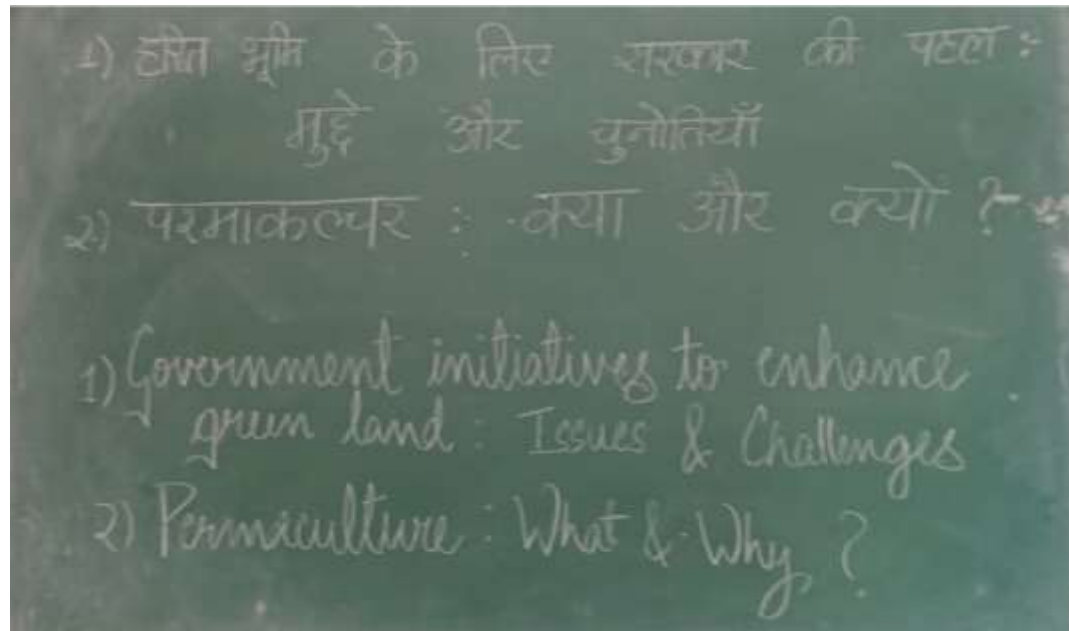 1) हरित भूमि के लिए सरकार की पहल :-
मुद्दे और चुनोतियाँ
2) परमाकल्चर : क्या और क्यों ?
1) Government initiatives to enhance
green land : Issues & Challenges
2) Permaculture : What & Why ?